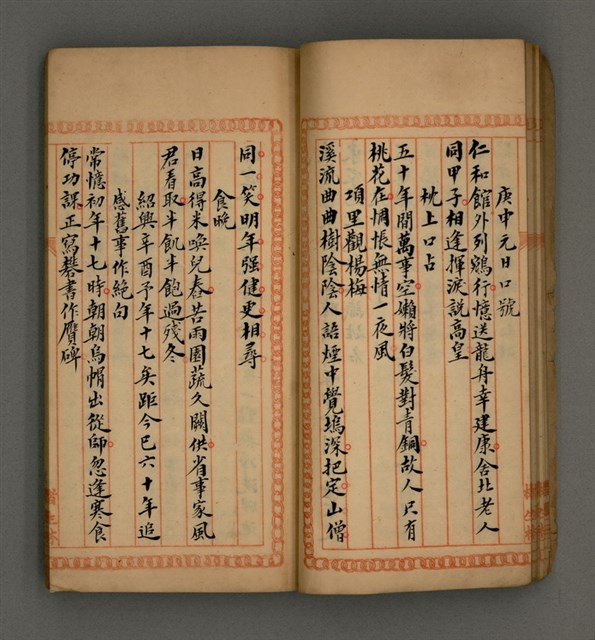 庚申元日口號
仁和館外列鵷行憶送龍舟幸建康舍北老人
同甲子相逢揮淚說高皇
枕上口占
五十年間萬事空嬾將白髮對青銅故人只有
桃花在惆悵無情一夜風
項里觀楊梅
溪流曲曲樹陰陰人語煙中覺塢深把定山僧
同一笑明年强健更相尋
食晚
日高得米喚兒舂苦雨園蔬久闕供省事家風
君看取半飢半飽過殘冬
紹興辛酉予年十七矣距今已六十年追
感舊事作絕句
常憶初年十七時朝朝烏帽出從師忽逢寒食
停功課正寫礬書作贋碑